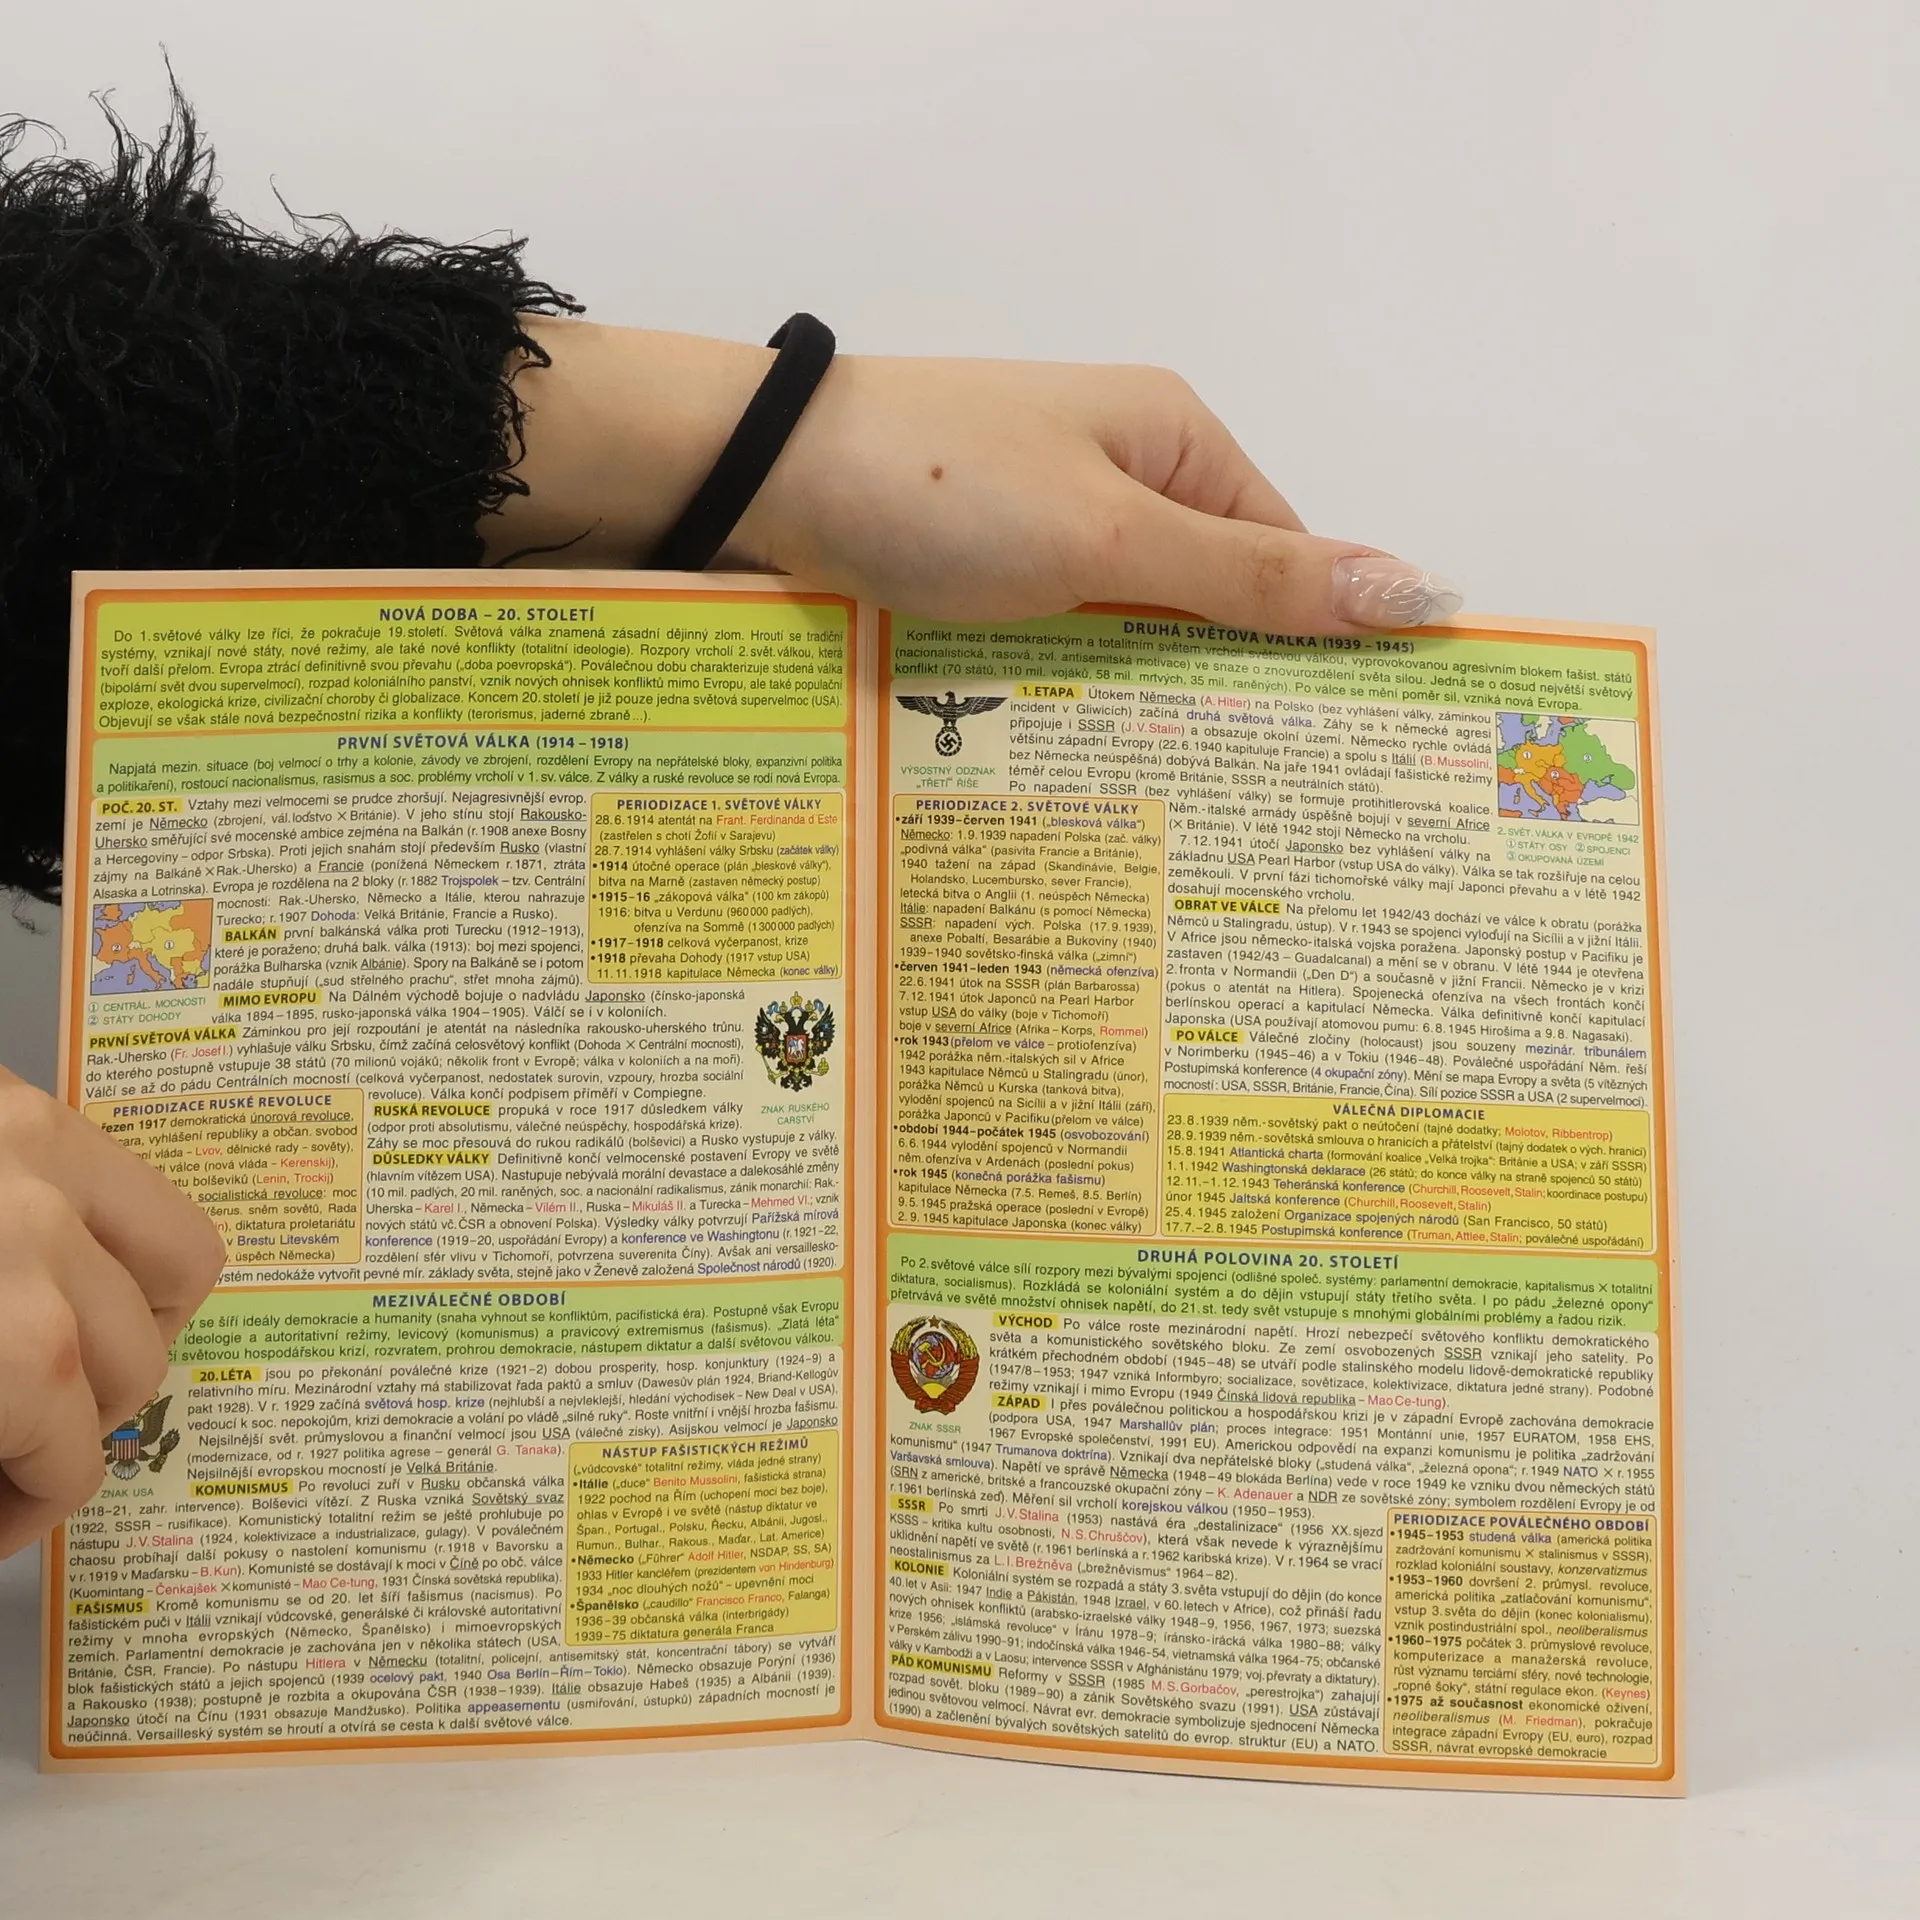 NOVÁ DOBA – 20. STOLETÍ
Do 1. světové války lze říci, že pokračuje 19. století. Světová válka znamená zásadní dějinný zlom. Hroutí se tradiční
systémy, vznikají nové státy, nové režimy, ale také nové konflikty (totalitní ideologie). Rozpory vrcholí 2. svět. válkou, která
tvoří další přelom. Evropa ztrácí definitivně svou převahu („doba poevropská“). Poválečnou dobu charakterizuje studená válka
(bipolární svět dvou supervelmocí), rozpad koloniálního panství, vznik nových ohnisek konfliktů mimo Evropu, ale také populační
exploze, ekologická krize, civilizační choroby či globalizace. Koncem 20. století je již pouze jedna světová supervelmoc (USA).
Objevují se však stále nová bezpečnostní rizika a konflikty (terorismus, jaderné zbraně...).
PRVNÍ SVĚTOVÁ VÁLKA (1914 – 1918)
Napjatá mezin. situace (boj velmocí o trhy a kolonie, závody ve zbrojení, rozdělení Evropy na nepřátelské bloky, expanzivní politika
a politikaření), rostoucí nacionalismus, rasismus a soc. problémy vrcholí v 1. sv. válce. Z války a ruské revoluce se rodí nová Evropa.
POČ. 20. ST. Vztahy mezi velmocemi se prudce zhoršují. Nejagresivnější evrop.
zemí je Německo (zbrojení, vál. loďstvo × Británie). V jeho stínu stojí Rakousko-
Uhersko směřující své mocenské ambice zejména na Balkán (r. 1908 anexe Bosny
a Hercegoviny - odpor Srbska). Proti jejich snahám stojí především Rusko (vlastní
zájmy na Balkáně × Rak.-Uhersko) a Francie (ponížená Německem r. 1871, ztráta
Alsaska a Lotrinska). Evropa je rozdělena na 2 bloky (r. 1882 Trojspolek – tzv. Centrální
mocnosti: Rak.-Uhersko, Německo a Itálie, kterou nahrazuje
Turecko; r. 1907 Dohoda: Velká Británie, Francie a Rusko).
BALKÁN první balkánská válka proti Turecku (1912–1913),
které je poraženo; druhá balk. válka (1913): boj mezi spojenci,
porážka Bulharska (vznik Albánie). Spory na Balkáně se i potom
nadále stupňují („sud střelného prachu“, střet mnoha zájmů).
① CENTRÁL. MOCNOSTI
② STÁTY DOHODY
MIMO EVROPU Na Dálném východě bojuje o nadvládu Japonsko (čínsko-japonská
válka 1894–1895, rusko-japonská válka 1904–1905). Válčí se i v koloniích.
PERIODIZACE 1. SVĚTOVÉ VÁLKY
28.6.1914 atentát na Frant. Ferdinanda d´Este
(zastřelen s chotí Žofií v Sarajevu)
28.7.1914 vyhlášení války Srbsku (začátek války)
•1914 útočné operace (plán „bleskové války“),
bitva na Marně (zastaven německý postup)
•1915–16 „zákopová válka“ (100 km zákopů)
1916: bitva u Verdunu (960 000 padlých),
ofenzíva na Sommě (1300000 padlých)
•1917–1918 celková vyčerpanost, krize
•1918 převaha Dohody (1917 vstup USA)
11.11.1918 kapitulace Německa (konec války)
PRVNÍ SVĚTOVÁ VÁLKA Záminkou pro její rozpoutání je atentát na následníka rakousko-uherského trůnu.
Rak.-Uhersko (Fr. Josef I.) vyhlašuje válku Srbsku, čímž začíná celosvětový konflikt (Dohoda × Centrální mocnosti),
do kterého postupně vstupuje 38 států (70 milionů vojáků; několik front v Evropě; válka v koloniích a na moři).
Válčí se až do pádu Centrálních mocností (celková vyčerpanost, nedostatek surovin, vzpoury, hrozba sociální
revoluce). Válka končí podpisem příměří v Compiegne.
ZNAK RUSKÉHO
CARSTVÍ
PERIODIZACE RUSKÉ REVOLUCE
řezen 1917 demokratická únorová revoluce,
cara, vyhlášení republiky a občan. svobod
ní vláda – Lvov, dělnické rady - sověty),
ti válce (nová vláda – Kerenskij),
atu bolševiků (Lenin, Trockij)
socialistická revoluce: moc
všerus. sněm sovětů, Rada
in), diktatura proletariátu
v Brestu Litevském
, úspěch Německa)
RUSKÁ REVOLUCE propuká v roce 1917 důsledkem války
(odpor proti absolutismu, válečné neúspěchy, hospodářská krize).
Záhy se moc přesouvá do rukou radikálů (bolševici) a Rusko vystupuje z války.
DŮSLEDKY VÁLKY Definitivně končí velmocenské postavení Evropy ve světě
(hlavním vítězem USA). Nastupuje nebývalá morální devastace a dalekosáhlé změny
(10 mil. padlých, 20 mil. raněných, soc. a nacionální radikalismus, zánik monarchií: Rak.-
Uherska – Karel I., Německa – Vilém II., Ruska – Mikuláš II. a Turecka – Mehmed VI.; vznik
nových států vč. ČSR a obnovení Polska). Výsledky války potvrzují Pařížská mírová
konference (1919-20, uspořádání Evropy) a konference ve Washingtonu (r. 1921-22,
rozdělení sfér vlivu v Tichomoří, potvrzena suverenita Číny). Avšak ani versaillesko-
ystém nedokáže vytvořit pevné mír. základy světa, stejně jako v Ženevě založená Společnost národů (1920).
MEZIVÁLEČNÉ OBDOBÍ
y se šíří ideály demokracie a humanity (snaha vyhnout se konfliktům, pacifistická éra). Postupně však Evropu
ideologie a autoritativní režimy, levicový (komunismus) a pravicový extremismus (fašismus). „Zlatá léta“
čí světovou hospodářskou krizí, rozvratem, prohrou demokracie, nástupem diktatur a další světovou válkou.
20. LÉTA jsou po překonání poválečné krize (1921–2) dobou prosperity, hosp. konjunktury (1924-9) a
relativního míru. Mezinárodní vztahy má stabilizovat řada paktů a smluv (Dawesův plán 1924, Briand-Kellogův
pakt 1928). V r. 1929 začíná světová hosp. krize (nejhlubší a nejvleklejší, hledání východisek - New Deal v USA),
vedoucí k soc. nepokojům, krizi demokracie a volání po vládě „silné ruky“. Roste vnitřní i vnější hrozba fašismu.
Nejsilnější svět. průmyslovou a finanční velmocí jsou USA (válečné zisky). Asijskou velmocí je Japonsko
(modernizace, od r. 1927 politika agrese – generál G. Tanaka).
Nejsilnější evropskou mocností je Velká Británie.
ZNAK USA
KOMUNISMUS Po revoluci zuří v Rusku občanská válka
(1918–21, zahr. intervence). Bolševici vítězí. Z Ruska vzniká Sovětský svaz
(1922, SSSR – rusifikace). Komunistický totalitní režim se ještě prohlubuje po
nástupu J. V. Stalina (1924, kolektivizace a industrializace, gulagy). V poválečném
chaosu probíhají další pokusy o nastolení komunismu (r. 1918 v Bavorsku a
v r. 1919 v Maďarsku – B. Kun). Komunisté se dostávají k moci v Číně po obč. válce
(Kuomintang – Čenkajšek × komunisté – Mao Ce-tung, 1931 Čínská sovětská republika).
FAŠISMUS Kromě komunismu se od 20. let šíří fašismus (nacismus). Po
fašistickém puči v Itálii vznikají vůdcovské, generálské či královské autoritativní
režimy v mnoha evropských (Německo, Španělsko) i mimoevropských
zemích. Parlamentní demokracie je zachována jen v několika státech (USA,
Británie, ČSR, Francie). Po nástupu Hitlera v Německu (totalitní, policejní, antisemitský stát, koncentrační tábory) se vytváří
blok fašistických států a jejich spojenců (1939 ocelový pakt, 1940 Osa Berlín–Řím–Tokio). Německo obsazuje Porýní (1936)
a Rakousko (1938); postupně je rozbita a okupována ČSR (1938–1939). Itálie obsazuje Habeš (1935) a Albánii (1939).
Japonsko útočí na Čínu (1931 obsazuje Mandžusko). Politika appeasementu (usmiřování, ústupků) západních mocností je
neúčinná. Versailleský systém se hroutí a otvírá se cesta k další světové válce.
NÁSTUP FAŠISTICKÝCH REŽIMŮ
(„vůdcovské“ totalitní režimy, vláda jedné strany)
•Itálie („duce“ Benito Mussolini, fašistická strana)
1922 pochod na Řím (uchopení moci bez boje),
ohlas v Evropě i ve světě (nástup diktatur ve
Špan., Portugal., Polsku, Řecku, Albánii, Jugosl.,
Rumun., Bulhar., Rakous., Maďar., Lat. Americe)
•Německo („Führer“ Adolf Hitler, NSDAP, SS, SA)
1933 Hitler kancléřem (prezidentem von Hindenburg)
1934 „noc dlouhých nožů“ – upevnění moci
•Španělsko („caudillo“ Francisco Franco, Falanga)
1936–39 občanská válka (interbrigády)
1939–75 diktatura generála Franca
DRUHÁ SVĚTOVÁ VÁLKA (1939 – 1945)
Konflikt mezi demokratickým a totalitním světem vrcholí světovou válkou, vyprovokovanou agresivním blokem fašist. států
(nacionalistická, rasová, zvl. antisemitská motivace) ve snaze o znovurozdělení světa silou. Jedná se o dosud největší světový
konflikt (70 států, 110 mil. vojáků, 58 mil. mrtvých, 35 mil. raněných). Po válce se mění poměr sil, vzniká nová Evropa.
VÝSOSTNÝ ODZNAK
„TŘETÍ“ ŘÍŠE
1. ETAPA Útokem Německa (A. Hitler) na Polsko (bez vyhlášení války, záminkou
incident v Gliwicích) začíná druhá světová válka. Záhy se k německé agresi
připojuje i SSSR (J. V. Stalin) a obsazuje okolní území. Německo rychle ovládá
většinu západní Evropy (22.6.1940 kapituluje Francie) a spolu s Itálií (B. Mussolini,
bez Německa neúspěšná) dobývá Balkán. Na jaře 1941 ovládají fašistické režimy
téměř celou Evropu (kromě Británie, SSSR a neutrálních států).
Po napadení SSSR (bez vyhlášení války) se formuje protihitlerovská koalice.
Něm.-italské armády úspěšně bojují v severní Africe
(× Británie). V létě 1942 stojí Německo na vrcholu.
7.12.1941 útočí Japonsko bez vyhlášení války na
základnu USA Pearl Harbor (vstup USA do války). Válka se tak rozšiřuje na celou
zeměkouli. V první fázi tichomořské války mají Japonci převahu a v létě 1942
dosahují mocenského vrcholu.
2. SVĚT. VÁLKA V EVROPĚ 1942
① STÁTY OSY ② SPOJENCI
③ OKUPOVANÁ ÚZEMÍ
PERIODIZACE 2. SVĚTOVÉ VÁLKY
•září 1939–červen 1941 („blesková válka“)
Německo: 1.9.1939 napadení Polska (zač. války)
„podivná válka“ (pasivita Francie a Británie),
1940 tažení na západ (Skandinávie, Belgie,
Holandsko, Lucembursko, sever Francie),
letecká bitva o Anglii (1. neúspěch Německa)
Itálie: napadení Balkánu (s pomocí Německa)
SSSR: napadení vých. Polska (17.9.1939),
anexe Pobaltí, Besarábie a Bukoviny (1940)
1939–1940 sovětsko-finská válka („zimní“)
•červen 1941–leden 1943 (německá ofenzíva)
22.6.1941 útok na SSSR (plán Barbarossa)
7.12.1941 útok Japonců na Pearl Harbor
vstup USA do války (boje v Tichomoří)
boje v severní Africe (Afrika – Korps, Rommel)
•rok 1943 (přelom ve válce – protiofenzíva)
1942 porážka něm.-italských sil v Africe
1943 kapitulace Němců u Stalingradu (únor),
porážka Němců u Kurska (tanková bitva),
vylodění spojenců na Sicílii a v jižní Itálii (září),
porážka Japonců v Pacifiku (přelom ve válce)
•období 1944–počátek 1945 (osvobozování)
6.6.1944 vylodění spojenců v Normandii
něm. ofenzíva v Ardenách (poslední pokus)
•rok 1945 (konečná porážka fašismu)
kapitulace Německa (7.5. Remeš, 8.5. Berlín)
9.5.1945 pražská operace (poslední v Evropě)
2.9.1945 kapitulace Japonska (konec války)
OBRAT VE VÁLCE Na přelomu let 1942/43 dochází ve válce k obratu (porážka
Němců u Stalingradu, ústup). V r. 1943 se spojenci vyloďují na Sicílii a v jižní Itálii.
V Africe jsou německo-italská vojska poražena. Japonský postup v Pacifiku je
zastaven (1942/43 – Guadalcanal) a mění se v obranu. V létě 1944 je otevřena
2. fronta v Normandii („Den D“) a současně v jižní Francii. Německo je v krizi
(pokus o atentát na Hitlera). Spojenecká ofenzíva na všech frontách končí
berlínskou operací a kapitulací Německa. Válka definitivně končí kapitulací
Japonska (USA používají atomovou pumu: 6.8.1945 Hirošima a 9.8. Nagasaki).
PO VÁLCE Válečné zločiny (holocaust) jsou souzeny mezinár. tribunálem
v Norimberku (1945–46) a v Tokiu (1946–48). Poválečné uspořádání Něm. řeší
Postupimská konference (4 okupační zóny). Mění se mapa Evropy a světa (5 vítězných
mocností: USA, SSSR, Británie, Francie, Čína). Sílí pozice SSSR a USA (2 supervelmoci).
VÁLEČNÁ DIPLOMACIE
23.8.1939 něm.-sovětský pakt o neútočení (tajné dodatky; Molotov, Ribbentrop)
28.9.1939 něm.-sovětská smlouva o hranicích a přátelství (tajný dodatek o vých. hranici)
15.8.1941 Atlantická charta (formování koalice „Velká trojka“: Británie a USA; v září SSSR)
1.1.1942 Washingtonská deklarace (26 států; do konce války na straně spojenců 50 států)
12.11.–1.12.1943 Teheránská konference (Churchill, Roosevelt, Stalin; koordinace postupu)
únor 1945 Jaltská konference (Churchill, Roosevelt, Stalin)
25.4.1945 založení Organizace spojených národů (San Francisco, 50 států)
17.7.–2.8.1945 Postupimská konference (Truman, Attlee, Stalin; poválečné uspořádání)
DRUHÁ POLOVINA 20. STOLETÍ
Po 2. světové válce sílí rozpory mezi bývalými spojenci (odlišné společ. systémy: parlamentní demokracie, kapitalismus × totalitní
diktatura, socialismus). Rozkládá se koloniální systém a do dějin vstupují státy třetího světa. I po pádu „železné opony“
přetrvává ve světě množství ohnisek napětí, do 21. st. tedy svět vstupuje s mnohými globálními problémy a řadou rizik.
ZNAK SSSR
VÝCHOD Po válce roste mezinárodní napětí. Hrozí nebezpečí světového konfliktu demokratického
světa a komunistického sovětského bloku. Ze zemí osvobozených SSSR vznikají jeho satelity. Po
krátkém přechodném období (1945–48) se utváří podle stalinského modelu lidově-demokratické republiky
(1947/8–1953; 1947 vzniká Informbyro; socializace, sovětizace, kolektivizace, diktatura jedné strany). Podobné
režimy vznikají i mimo Evropu (1949 Čínská lidová republika – Mao Ce-tung).
ZÁPAD I přes poválečnou politickou a hospodářskou krizi je v západní Evropě zachována demokracie
(podpora USA, 1947 Marshallův plán; proces integrace: 1951 Montánní unie, 1957 EURATOM, 1958 EHS,
1967 Evropské společenství, 1991 EU). Americkou odpovědí na expanzi komunismu je politika „zadržování
komunismu“ (1947 Trumanova doktrína). Vznikají dva nepřátelské bloky („studená válka“, „železná opona“; r. 1949 NATO × r. 1955
Varšavská smlouva). Napětí ve správě Německa (1948–49 blokáda Berlína) vede v roce 1949 ke vzniku dvou německých států
(SRN z americké, britské a francouzské okupační zóny – K. Adenauer a NDR ze sovětské zóny; symbolem rozdělení Evropy je od
r. 1961 berlínská zeď). Měření sil vrcholí korejskou válkou (1950–1953).
SSSR Po smrti J. V. Stalina (1953) nastává éra „destalinizace“ (1956 XX. sjezd
KSSS – kritika kultu osobnosti, N. S. Chruščov), která však nevede k výraznějšímu
uklidnění napětí ve světě (r. 1961 berlínská a r. 1962 karibská krize). V r. 1964 se vrací
neostalinismus za L. I. Brežněva („brežněvismus“ 1964–82).
KOLONIE Koloniální systém se rozpadá a státy 3. světa vstupují do dějin (do konce
40. let v Asii: 1947 Indie a Pákistán, 1948 Izrael, v 60. letech v Africe), což přináší řadu
nových ohnisek konfliktů (arabsko-izraelské války 1948–9, 1956, 1967, 1973; suezská
krize 1956; „islámská revoluce“ v Íránu 1978–9; íránsko-irácká válka 1980–88; války
v Perském zálivu 1990–91; indočínská válka 1946–54, vietnamská válka 1964–75; občanské
války v Kambodži a v Laosu; intervence SSSR v Afghánistánu 1979; voj. převraty a diktatury).
PÁD KOMUNISMU Reformy v SSSR (1985 M. S. Gorbačov, „perestrojka“) zahajují
rozpad sovět. bloku (1989–90) a zánik Sovětského svazu (1991). USA zůstávají
jedinou světovou velmocí. Návrat evr. demokracie symbolizuje sjednocení Německa
(1990) a začlenění bývalých sovětských satelitů do evrop. struktur (EU) a NATO.
PERIODIZACE POVÁLEČNÉHO OBDOBÍ
•1945–1953 studená válka (americká politika
zadržování komunismu × stalinismus v SSSR),
rozklad koloniální soustavy, konzervatizmus
•1953–1960 dovršení 2. průmysl. revoluce,
americká politika „zatlačování komunismu“,
vstup 3. světa do dějin (konec kolonialismu),
vznik postindustriální spol., neoliberalismus
•1960–1975 počátek 3. průmyslové revoluce,
komputerizace a manažerská revoluce,
růst významu terciární sféry, nové technologie,
„ropné šoky“, státní regulace ekon. (Keynes)
•1975 až současnost ekonomické oživení,
neoliberalismus (M. Friedman), pokračuje
integrace západní Evropy (EU, euro), rozpad
SSSR, návrat evropské demokracie